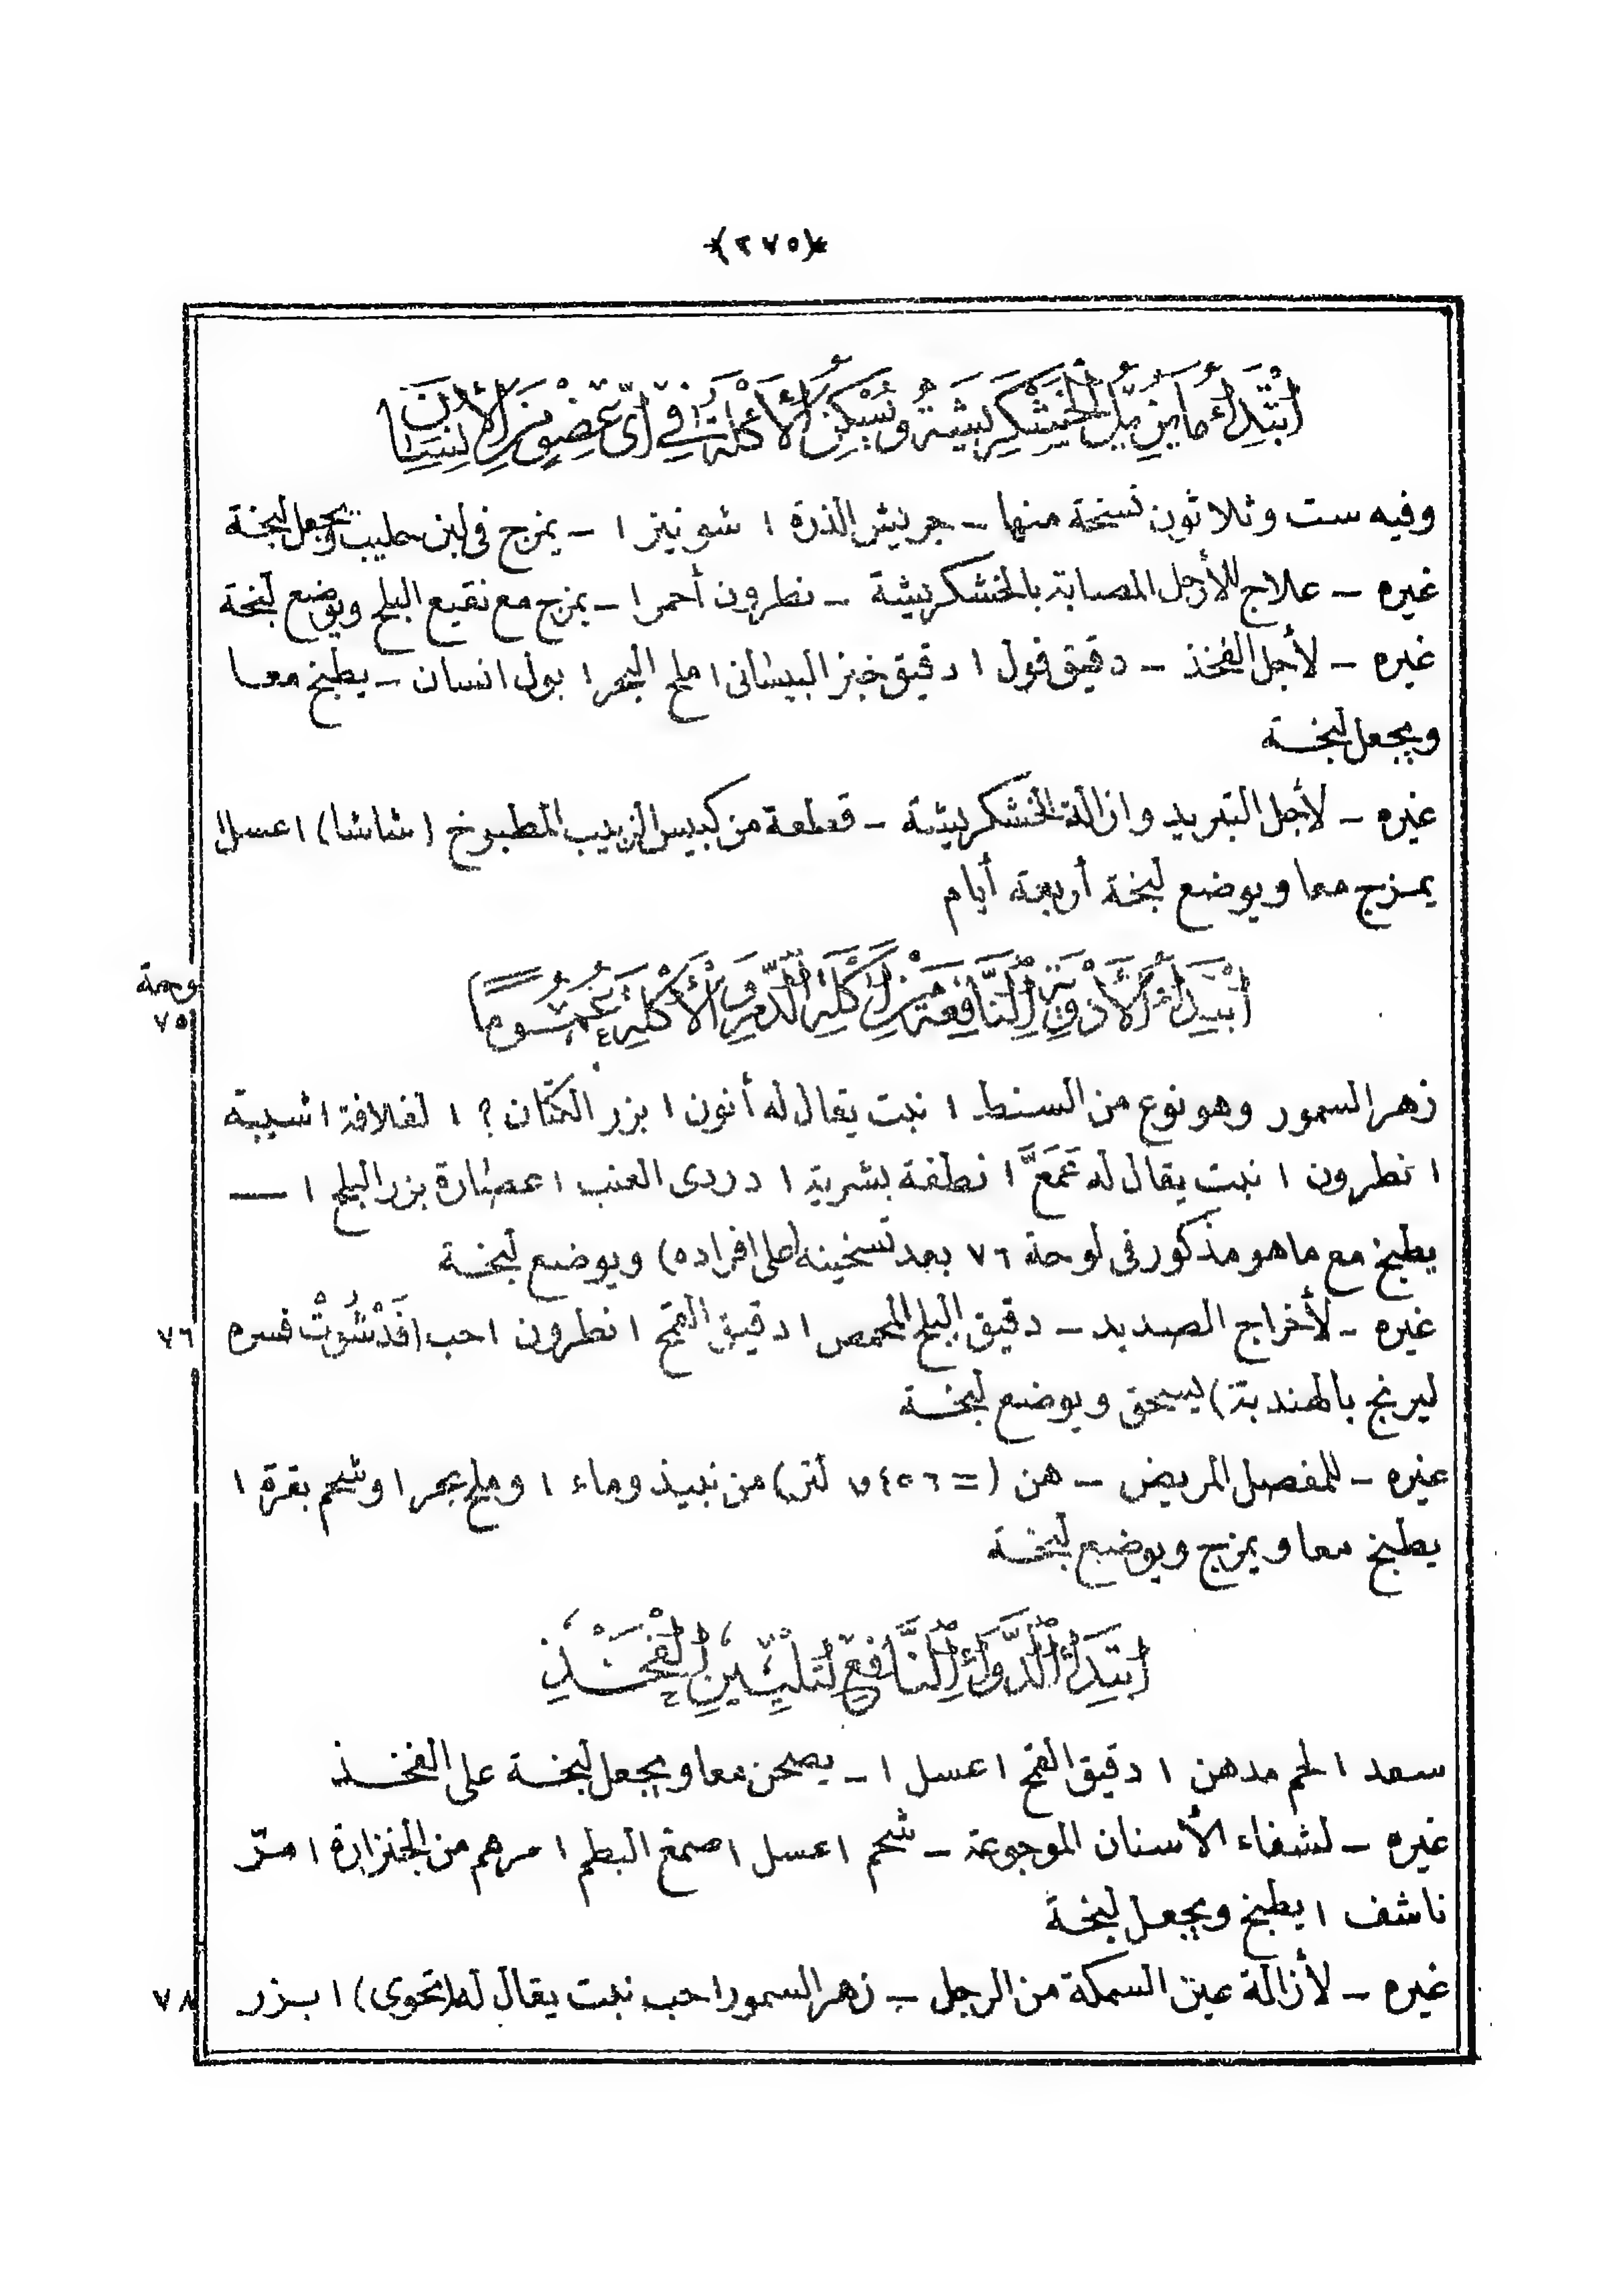 ﴿٢٧٥﴾
ابْتِدَاءُ مَا يُزِيلُ الْخُشْكَرِيشَةُ وَتُسَكِّنُ الْأَكْلَةَ فِي أَيِّ عُضْوٍ مِنَ الْإِنْسَانِ
وفيه ست وثلاثون نسخة منها – جريش الذرة ١ شونيز ١ – يمزج فى لبن حليب ويجعل لبخة
غيره – علاج للأرجل المصابة بالخشكريشة – نطرون أحمر ١ – يمزج مع نقيع البلح ويوضع لبخة
غيره – لأجل الفخذ – دقيق فول ١ دقيق خبز البيسانى ١ ملح البحر ١ بول انسان – يطبخ معا
ويجعل لبخة
غيره – لأجل التبريد وازالة الخشكريشة – قطعة من كبيس الزبيب المطبوخ (شاشا) ١ عسل ١
يمزج معا ويوضع لبخة أربعة أيام
ابْتِدَاءُ الْأَدْوِيَةِ النَّافِعَةِ مِنْ أَكْلَةِ الدَّمِ وَالْأَكْلَةِ عُمُومًا
لوحة
٧٥
زهر السمور وهو نوع من السنط ١ نبت يقال له أنون ١ بزر الكتان ؟ ١ لفلافة ١ شيبة
١ نطرون ١ نبت يقال له عَمَعَّ ١ نطفة بشرية ١ دردى العنب ١ عصارة بزر البلح ١ —
يطبخ مع ما هو مذكور فى لوحة ٧٦ بعد تسخينه (على افراده) ويوضع لبخة
غيره – لأخراج الصديد – دقيق البلح المحمص ١ دقيق القمح ١ نطرون ١ حب (فَدْشُوتْ فسره
٧٦
ليرنج بالهندبة) يسحق ويوضع لبخة
غيره – للمفصل المريض – هن (= ٤٥٦, لتر) من نبيذ وماء ١ وملح بحر ١ وشحم بقرة ١
يطبخ معا ويمزج ويوضع لبخة
ابْتِدَاءُ الدَّوَاءِ النَّافِعِ لِتَلْيِينِ الْفَخْذِ
سعد ١ لحم مدهن ١ دقيق القمح ١ عسل ١ – يصحن معا ويجعل لبخة على الفخذ
غيره – لشفاء الأسنان الموجوعة – شحم ١ عسل ١ صمغ البطم ١ مرهم من الجنزارة ١ مرّ
ناشف ١ يطبخ ويجعل لبخة
غيره – لأزالة عين السمكة من الرجل – زهر السمور ١ حب نبت يقال له (تحوى) ١ بزر
٧٨